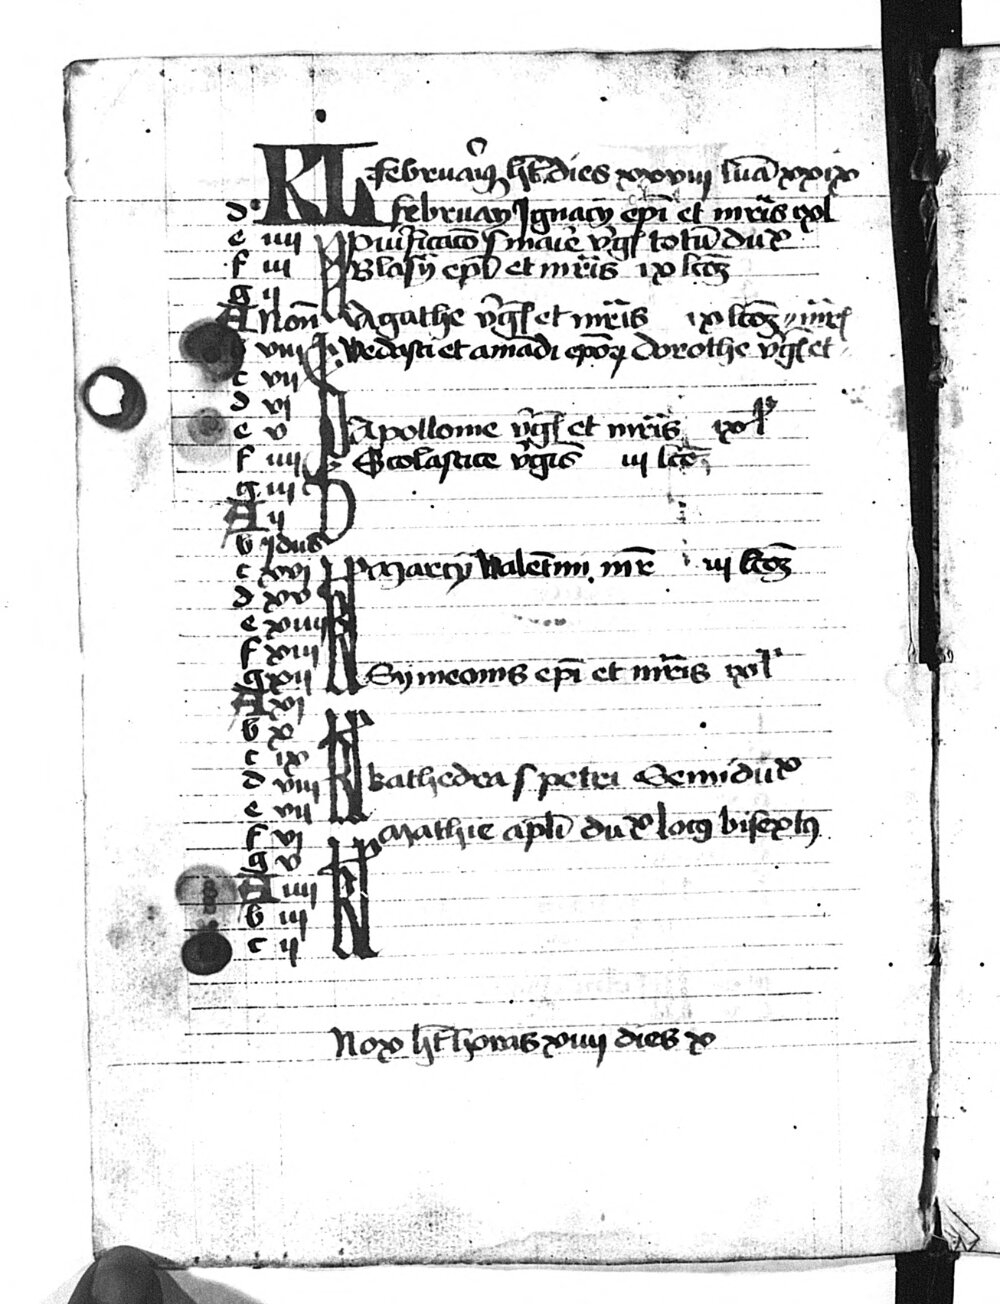 KL Februari᷒ ht dies xxviii luа xxix
d februarij Ignacij epi et mris ixl
e iiii N Purificacio s marie vgis totu dux
f iii Blasij epi et mris ix lcoz
g ii
A Non Agathe vgis et mris ix lcoz
b viii Vedasti et amandi epoꝝ dorothe vgis et
c vii
d vi
e v Apollonie vgis et mris ixl
f iiii Scolastice vgis iii lco
g iii
A ii
b Idus
c xvi Marcij Valentini mr iii lcoz
d xv
e xiiii
f xiii
g xii Symeonis epi et mris ixl
A xi
b x
c ix
d viii kathedra s petri Semidux
e vii
f vi Mathie apli dux locꝰ bisextꝰ
g v
A iiii
b iii
c ii
Nox ht horas xiiii dies x